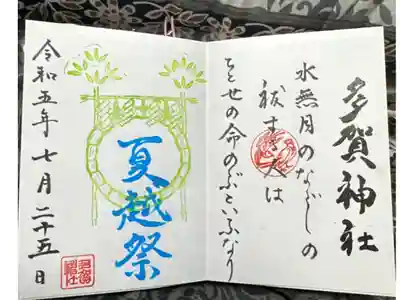 多賀神社
水無月のなごしの
祓する人は
ちとせの命のぶといふなり
夏越祭
令和五年七月二十五日